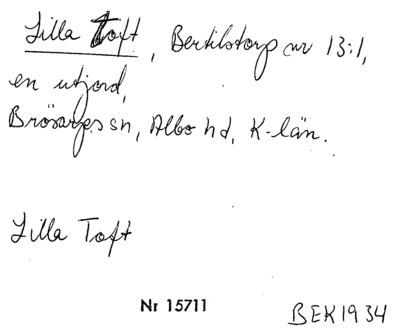 Lilla Toft, Bertilstorp nr 13:1,
en utjord,
Brösarps sn, Albo hd, K-län.
Lilla Toft
Nr 15711
BEK1934